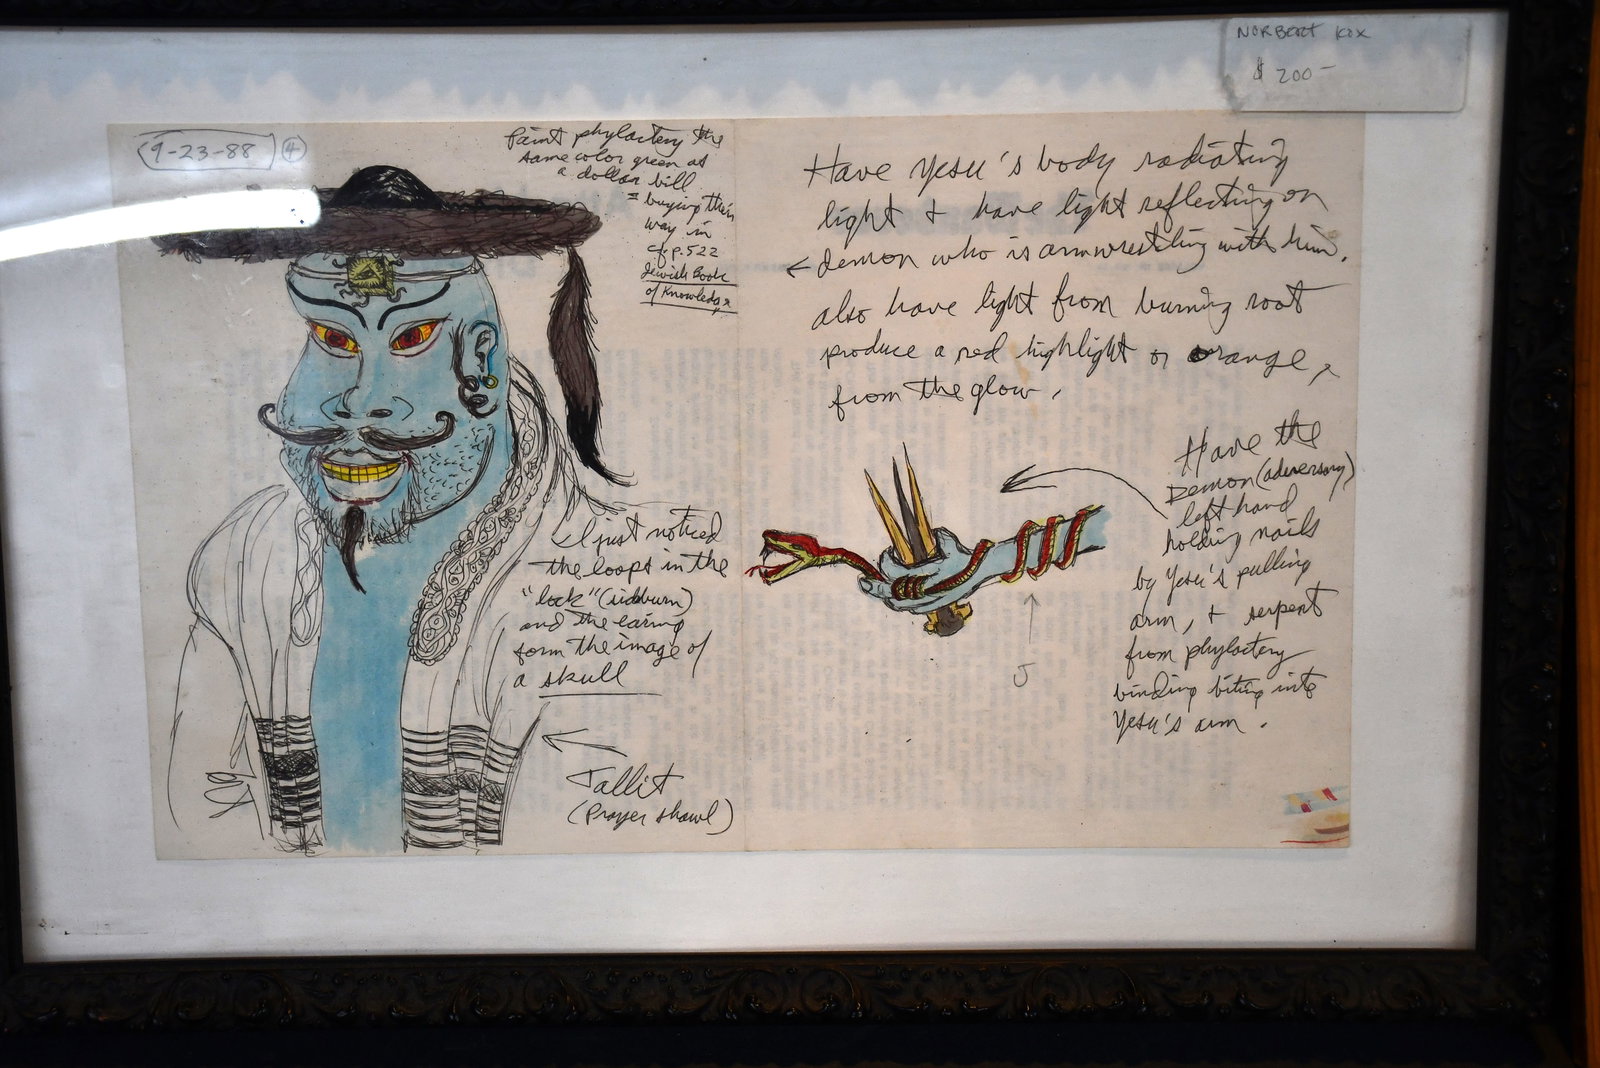 NORBERT KOX
$ 200-
9-23-88 4
Paint phylactery the
same color green as
a dollar bill
= buying their
way in
cf. p. 522
Jewish Book
of Knowledge
I just noticed
the loops in the
"lock" (sideburn)
and the earing
form the image of
a skull
Tallit
(Prayer shawl)
Have Yesu's body radiating
light & have light reflecting on
demon who is armwrestling with him.
also have light from burning root
produce a red highlight or orange,
from the glow.
Have the
Demon (adversary)
left hand
holding nails
by Yesu's pulling
arm, & serpent
from phylactery
binding biting into
Yesu's arm.